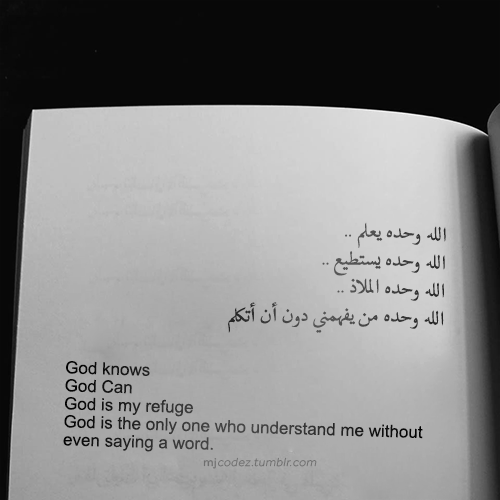 الله وحده يعلم ..
الله وحده يستطيع ..
الله وحده الملاذ ..
الله وحده من يفهمني دون أن أتكلم
God knows
God Can
God is my refuge
God is the only one who understand me without
even saying a word.
mjcodez.tumblr.com